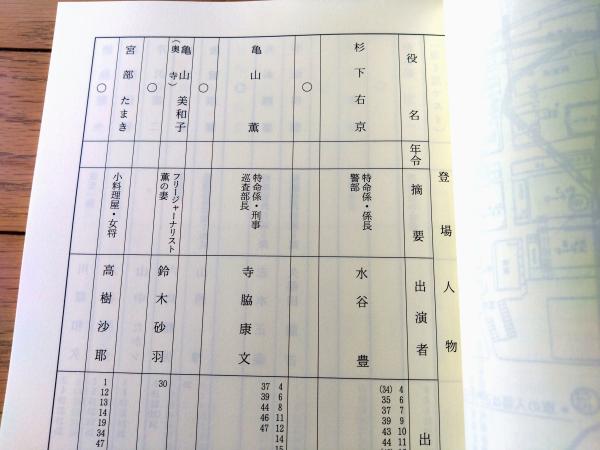 登場人物
役名
年令
摘要
出演者
出
杉下右京
特命係・係長
警部
水谷豊
4
6
7
9
10
11
(34)
35
37
39
43
44
○
亀山薫
特命係・刑事
巡査部長
寺脇康文
4
6
8
11
12
14
15
37
39
44
46
47
○
亀山美和子
(奥寺)
フリージャーナリスト
薫の妻
鈴木砂羽
30
○
宮部たまき
小料理屋・女将
高樹沙耶
1
12
13
14
19
34
47
○